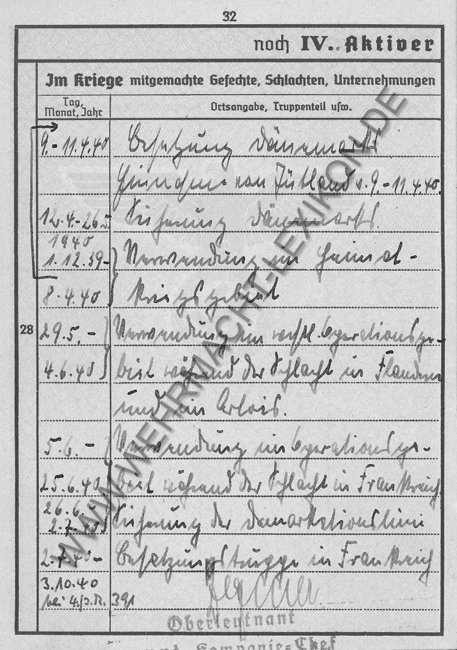 32
noch IV. Aktiver
Im Kriege mitgemachte Gefechte, Schlachten, Unternehmungen
Tag, Monat, Jahr
Ortsangabe, Truppenteil usw.
9.- 11.4.40 Besetzung Dänemarks
von Jütland v. 9. - 11.4.40.
12.4.- 26.5. Sicherung Dänemarks
1940
1.12.39 - Verwendung im Heimat-
8.4.40 Kriegsgebiet
28
29.5. - Verwendung im rückw. Operationsge-
4.6.40 biet während der Schlacht in Flandern
und im Artois.
5.6. - Verwendung im Operationsge-
25.6.40 biet während der Schlacht in Frankreich
26.6. -
2.7.40 Sicherung der Demarkationslinie
2.7.40 - Besetzungstruppe in Frankreich
3.10.40
bei 4./J.R. 391
Oberleutnant
und Kompanie-Chef
WWW.WEHRMACHT-LEXIKON.DE